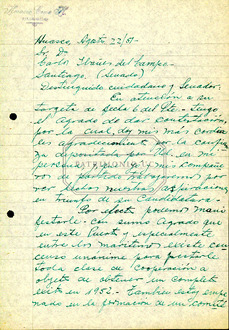 Huasco, Agsto 22/51-
Sr. Dn
Carlo Ibáñez del Campo-
Santiago (Senado)
Distinguido ciudadano y Senador.
En atención a su
tarjeta de fecha 6 del Pte- tengo
el agrado de dar contestación
por la cual, doy mis más cordia
les agradecimientos por la confian
za depositada por Ud. en mi
persona
de partido trabajaremos por
ver
en triunfo de su Candidatura-
Por esto podemos mani
festarle con sumo agrado que
en este Puerto y especialmente
entre los marítimos existe con
censo unánime para prestarle
toda clase de cooperación a
objeto de obtener un completo
éxito en 1952- Tambien estoy empe
ñado en la formación de un Comité